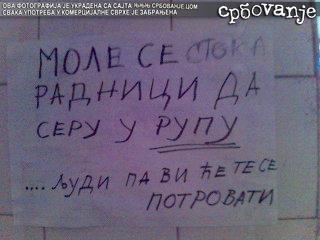 ОВА ФОТОГРАФИЈА ЈЕ УКРАДЕНА СА САЈТА СРБОВАЊЕ ЦОМ
СВАКА УПОТРЕБА У КОМЕРЦИЈАЛНЕ СВРХЕ ЈЕ ЗАБРАЊЕНА
србоvanje
МОЛЕ СЕ СТОКА
РАДНИЦИ ДА
СЕРУ У РУПУ
.... ЉУДИ ПА ВИ ЋЕТЕ СЕ
ПОТРОВАТИ